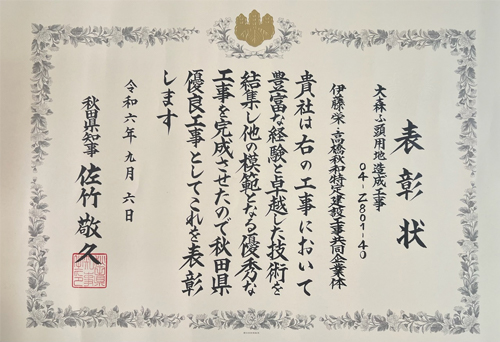 表彰状
大森ふ頭用地造成工事
04-Z801-40
伊藤栄・髙橋秋和特定建設工事共同企業体
貴社は右の工事において
豊富な経験と卓越した技術を
結集し他の模範となる優秀な
工事を完成させたので秋田県
優良工事としてこれを表彰
します
令和六年九月六日
秋田県知事 佐竹敬久